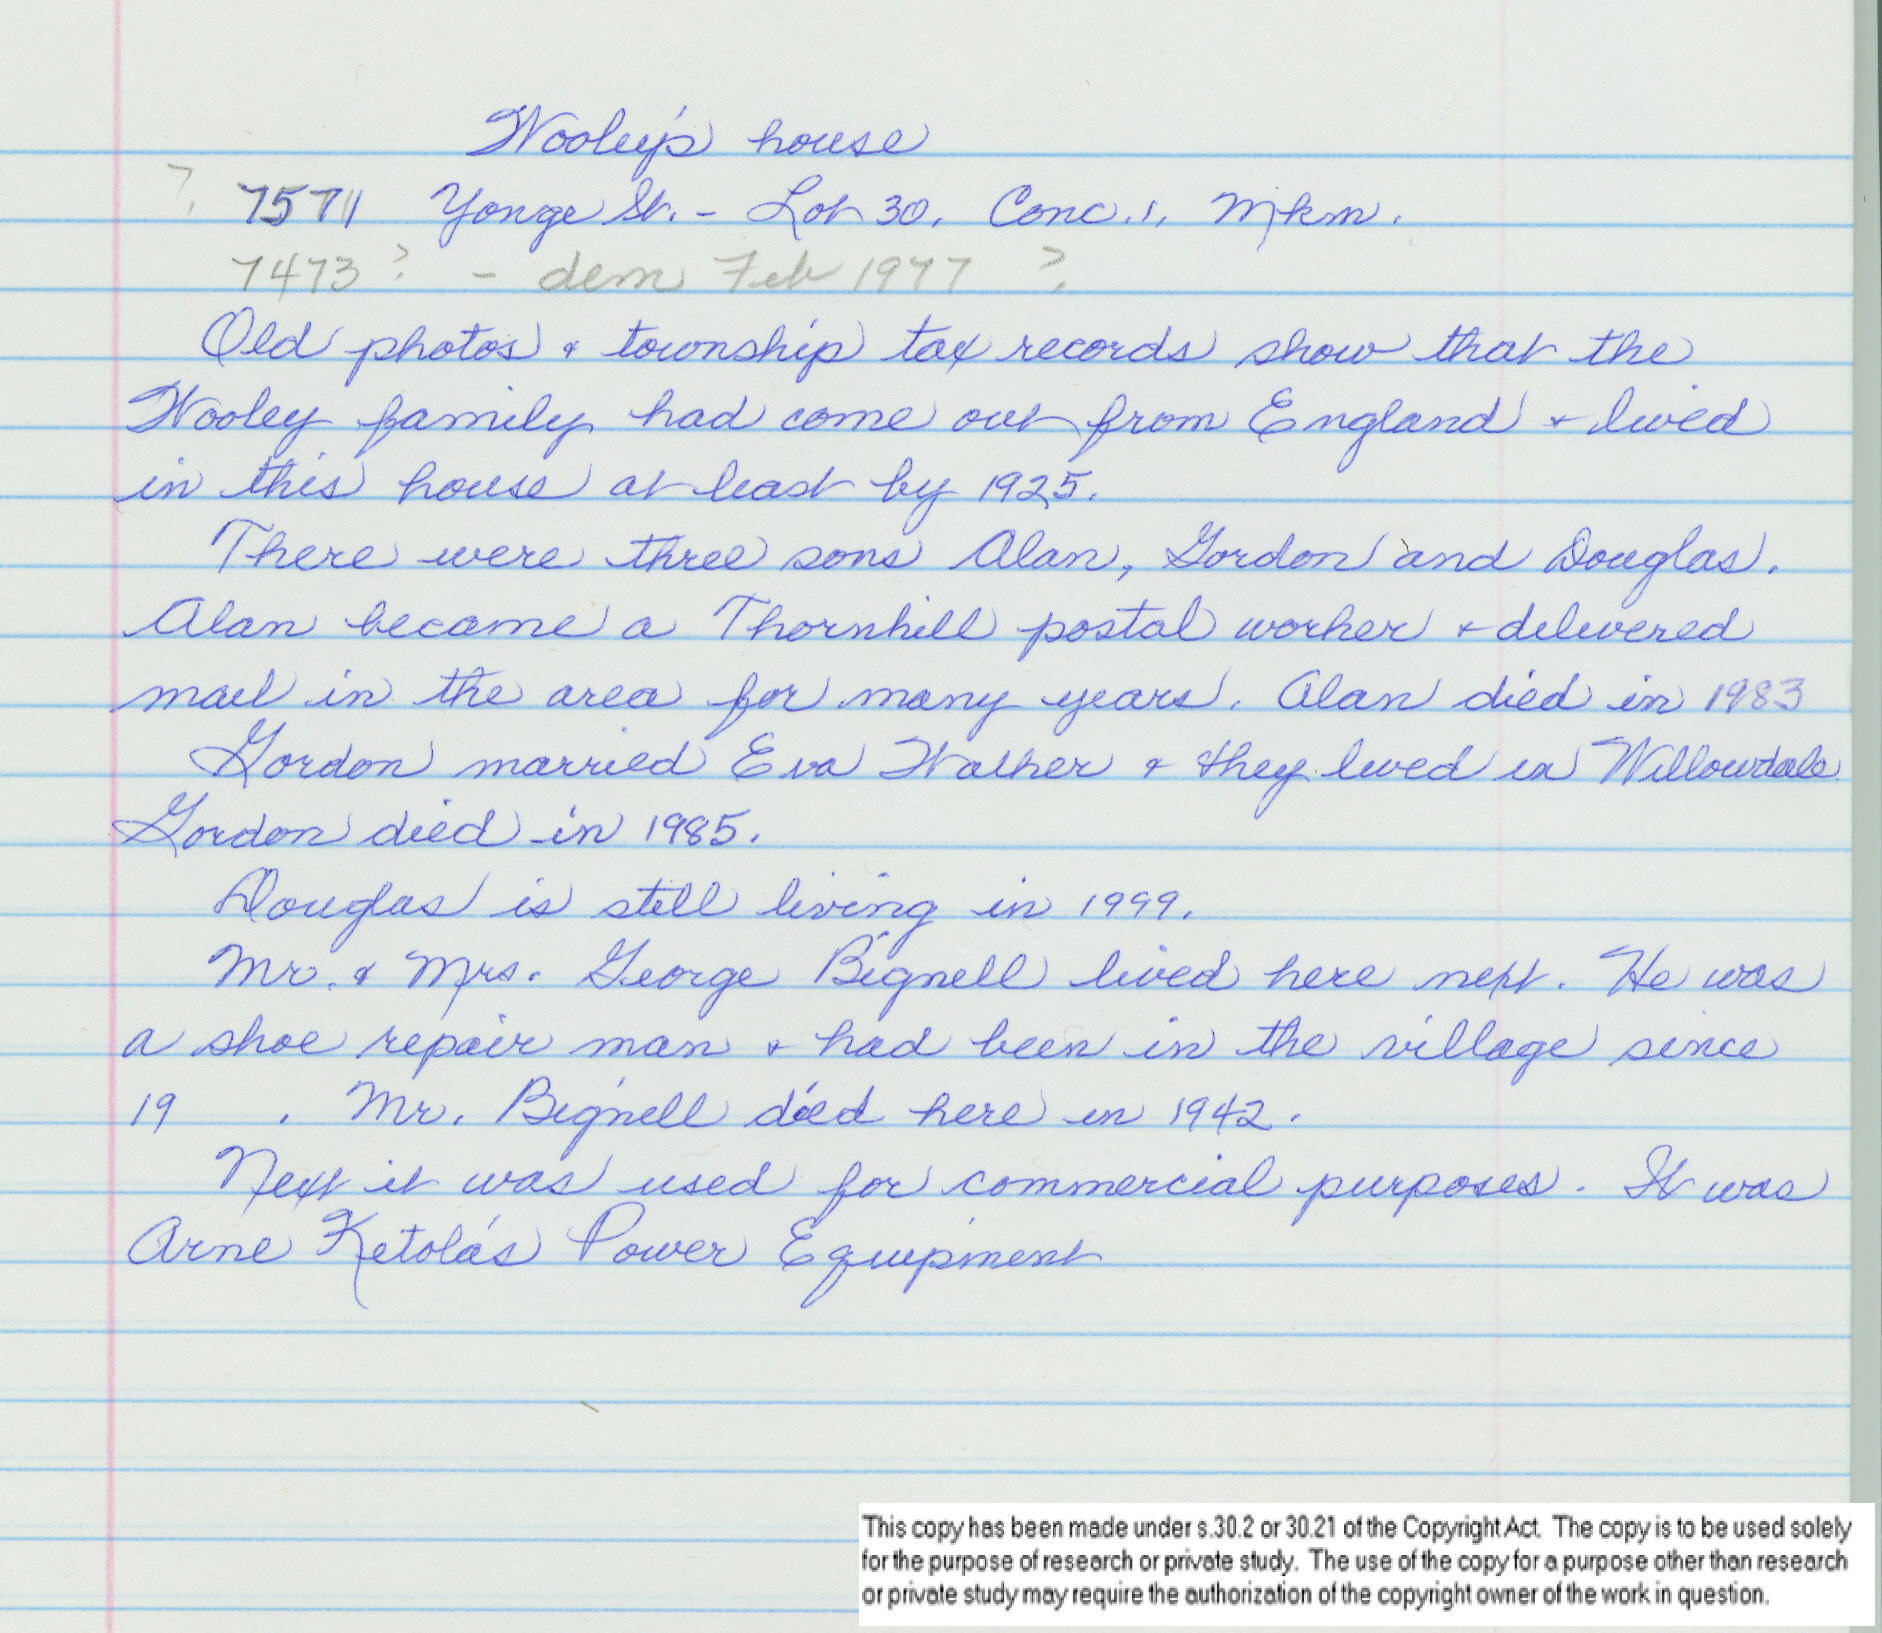 Wooley's house
? 7571 Yonge St. - Lot 30, Conc. 1, Mkm.
7473? - dem Feb 1977 ?
Old photos & township tax records show that the
Wooley family had come out from England & lived
in this house at least by 1925.
There were three sons Alan, Gordon and Douglas.
Alan became a Thornhill postal worker & delivered
mail in the area for many years. Alan died in 1983
Gordon married Eva Walker & they lived in Willowdale
Gordon died in 1985.
Douglas is still living in 1999.
Mr. & Mrs. George Bignell lived here next. He was
a shoe repair man & had been in the village since
19 . Mr. Bignell died here in 1942.
Next it was used for commercial purposes. It was
Arne Ketola's Power Equipment
This copy has been made under s.30.2 or 30.21 of the Copyright Act. The copy is to be used solely
for the purpose of research or private study. The use of the copy for a purpose other than research
or private study may require the authorization of the copyright owner of the work in question.